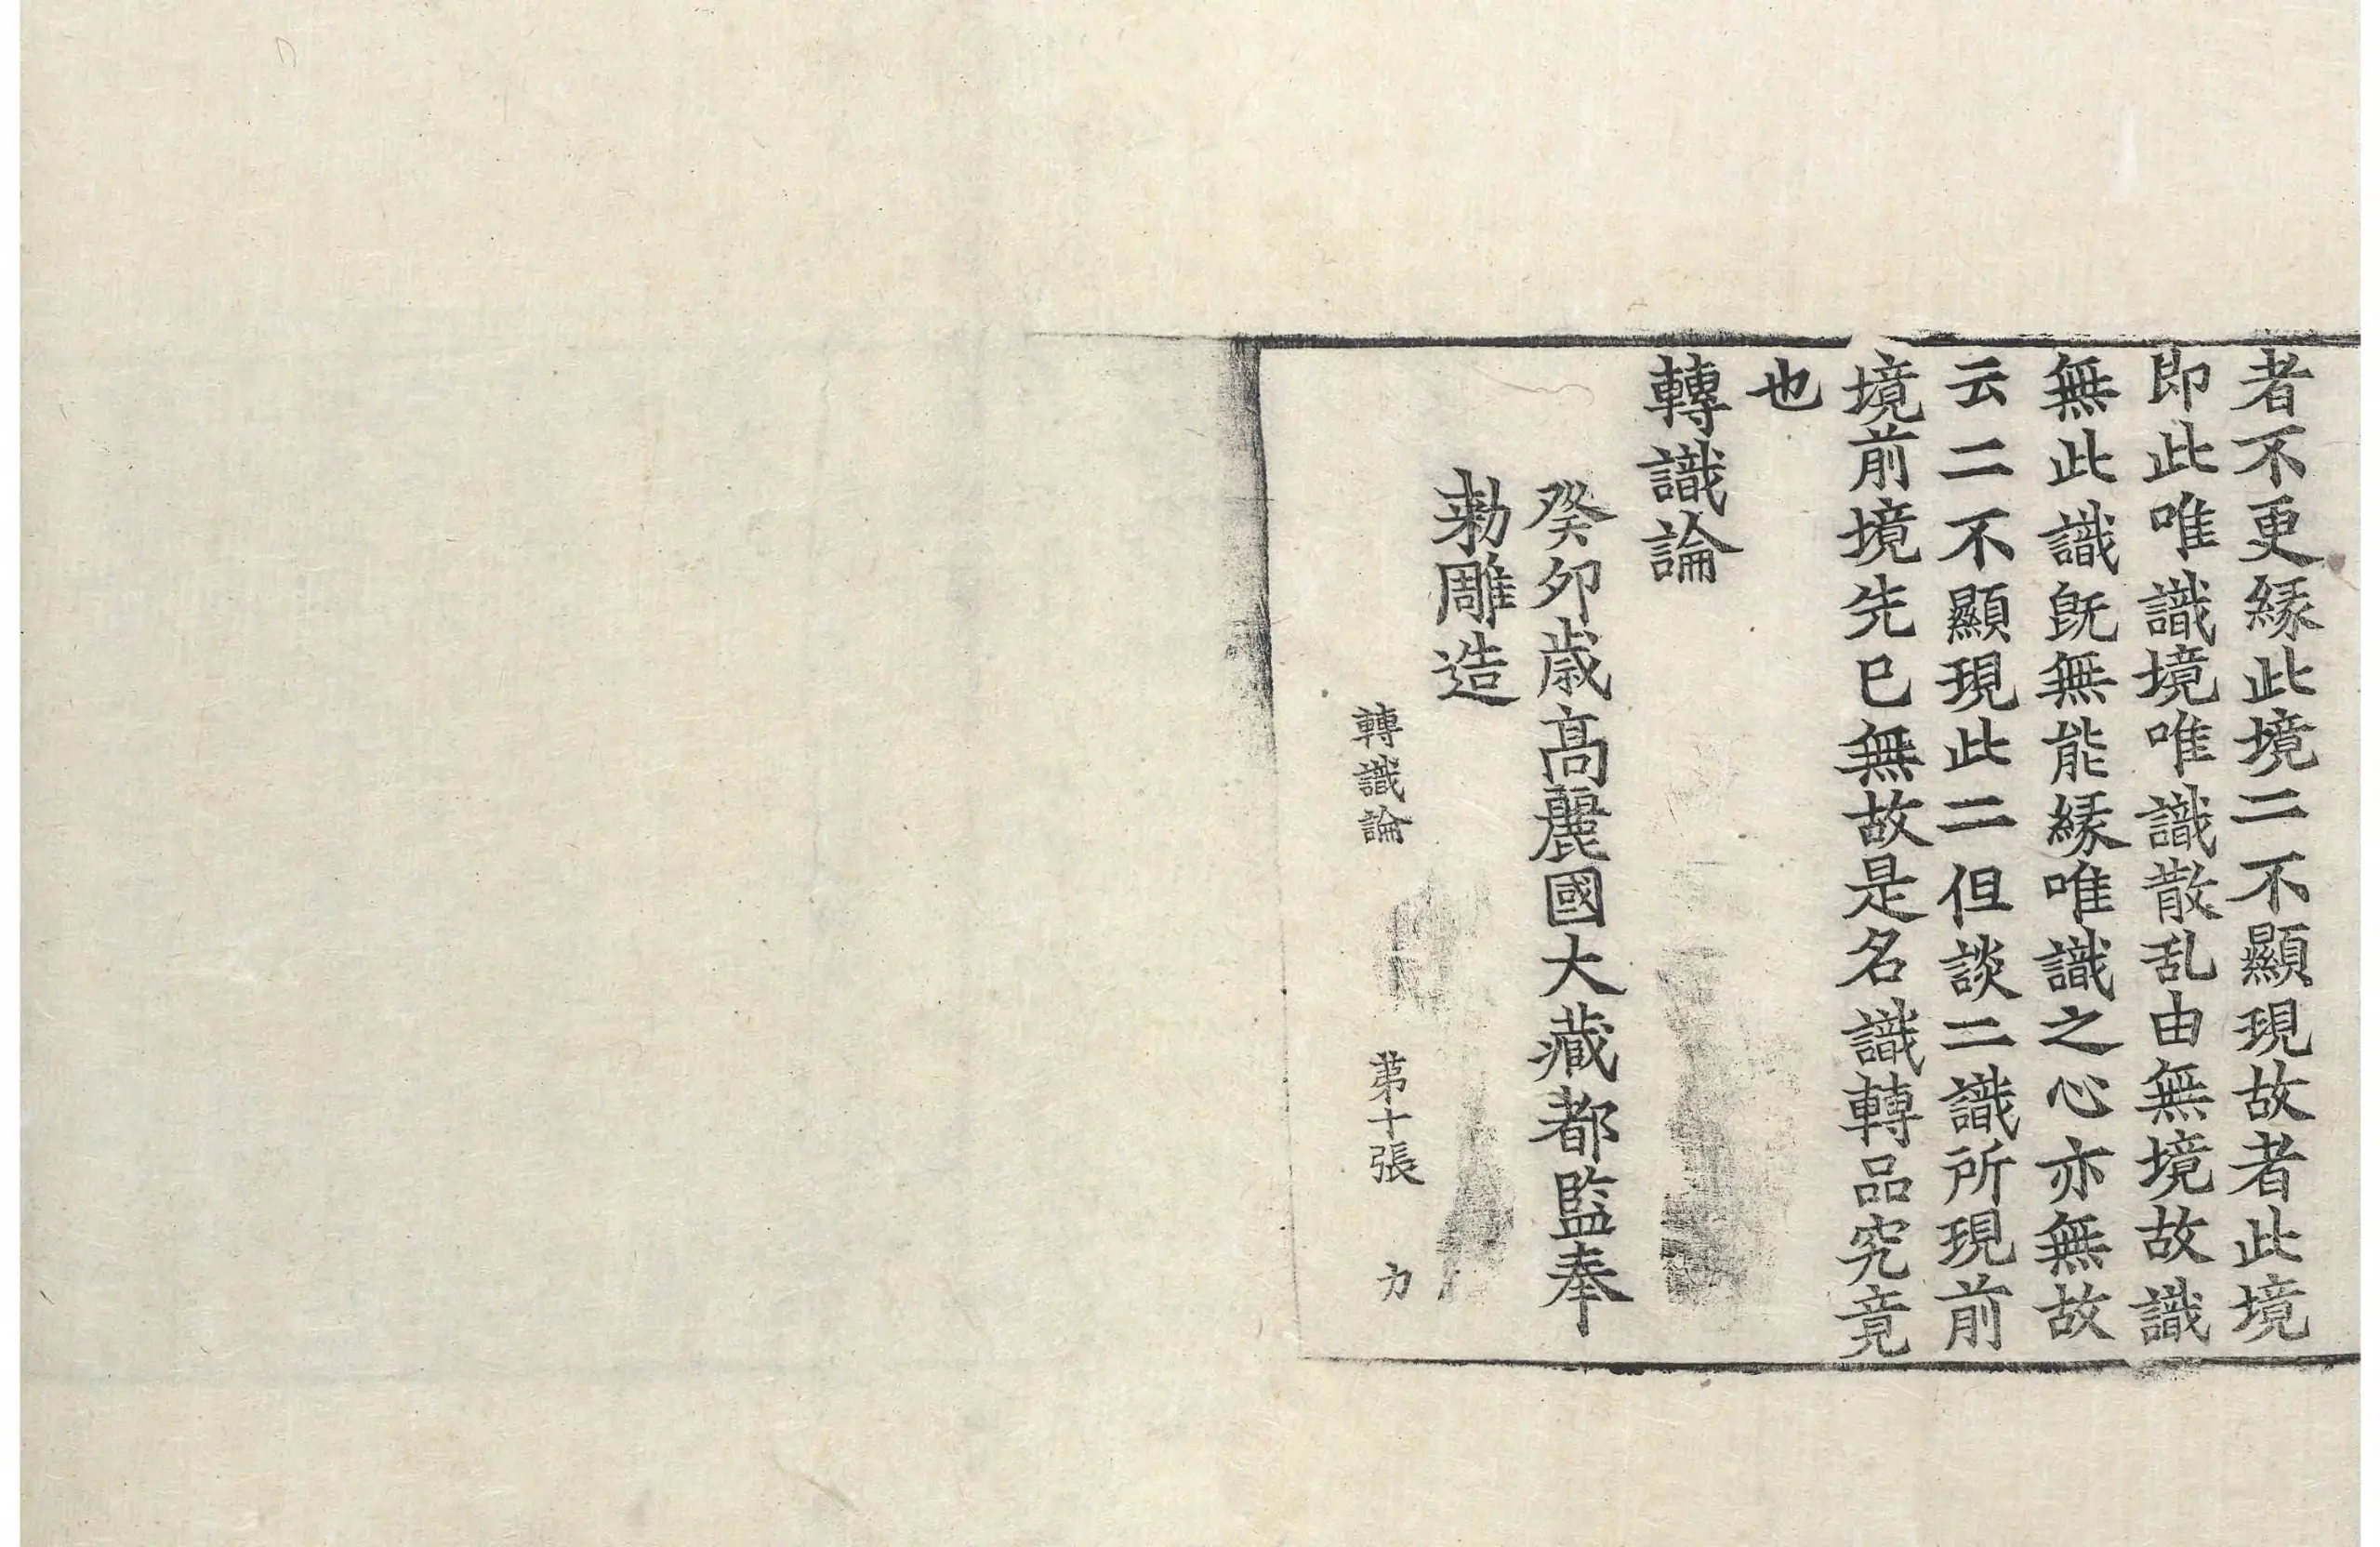 者不更縁此境二不顯現故者此境
即此唯識境唯識散乱由無境故識
無此識旣無能縁唯識之心亦無故
云二不顯現此二但談二識所現前
境前境先已無故是名識轉品究竟
也
轉識論
癸卯歳高麗國大藏都監奉
勑雕造
轉識論 苐十張 力